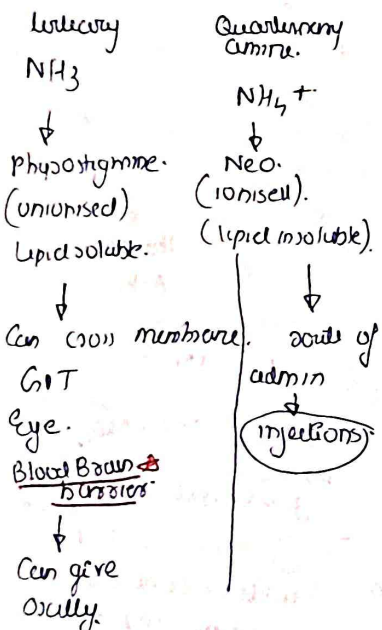 tertiary
NH3
Physostigmine.
(unionised)
lipid soluble.
Can cross membrane.
GIT
Eye.
Blood Brain
barrier.
Can give
Orally.
Quarternary
amine.
NH4 +
Neo.
(ionised).
(lipid insoluble).
route of
admin
injections.